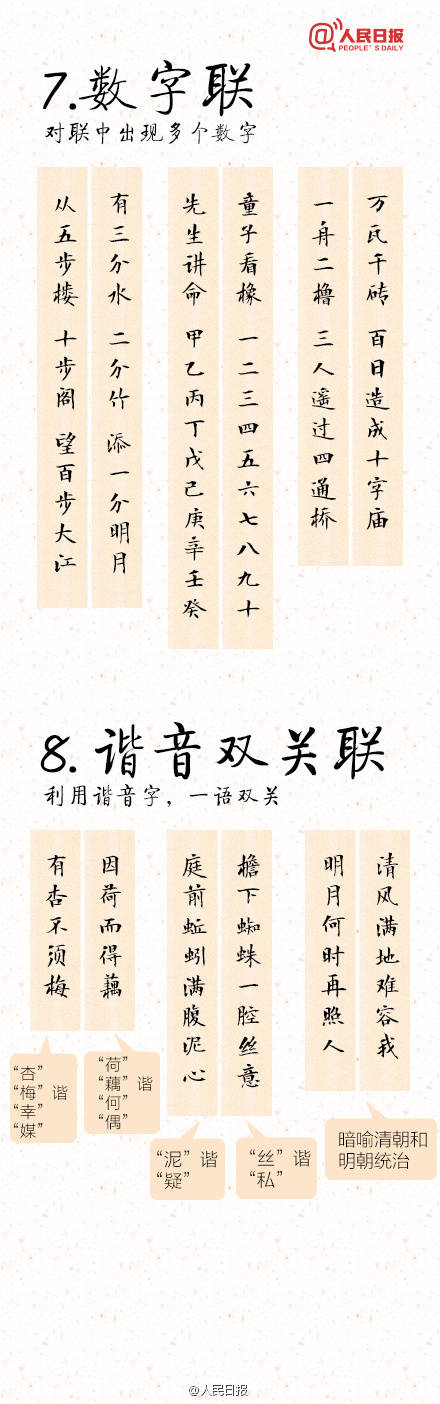 @人民日报
PEOPLE'S DAILY
7.数字联
对联中出现多个数字
万瓦千砖 百日造成十字庙
一舟二橹 三人遥过四通桥
童子看橡 一二三四五六七八九十
先生讲命 甲乙丙丁戊己庚辛壬癸
有三分水 二分竹 添一分明月
从五步楼 十步阁 望百步大江
8.谐音双关联
利用谐音字，一语双关
清风满地难容我
明月何时再照人
檐下蜘蛛一腔丝意
庭前蚯蚓满腹泥心
因荷而得藕
有杏不须梅
“杏”
“梅”谐
“幸”
“媒”
“荷”
“藕”谐
“何”
“偶”
“泥”谐
“疑”
“丝”谐
“私”
暗喻清朝和
明朝统治
@人民日报